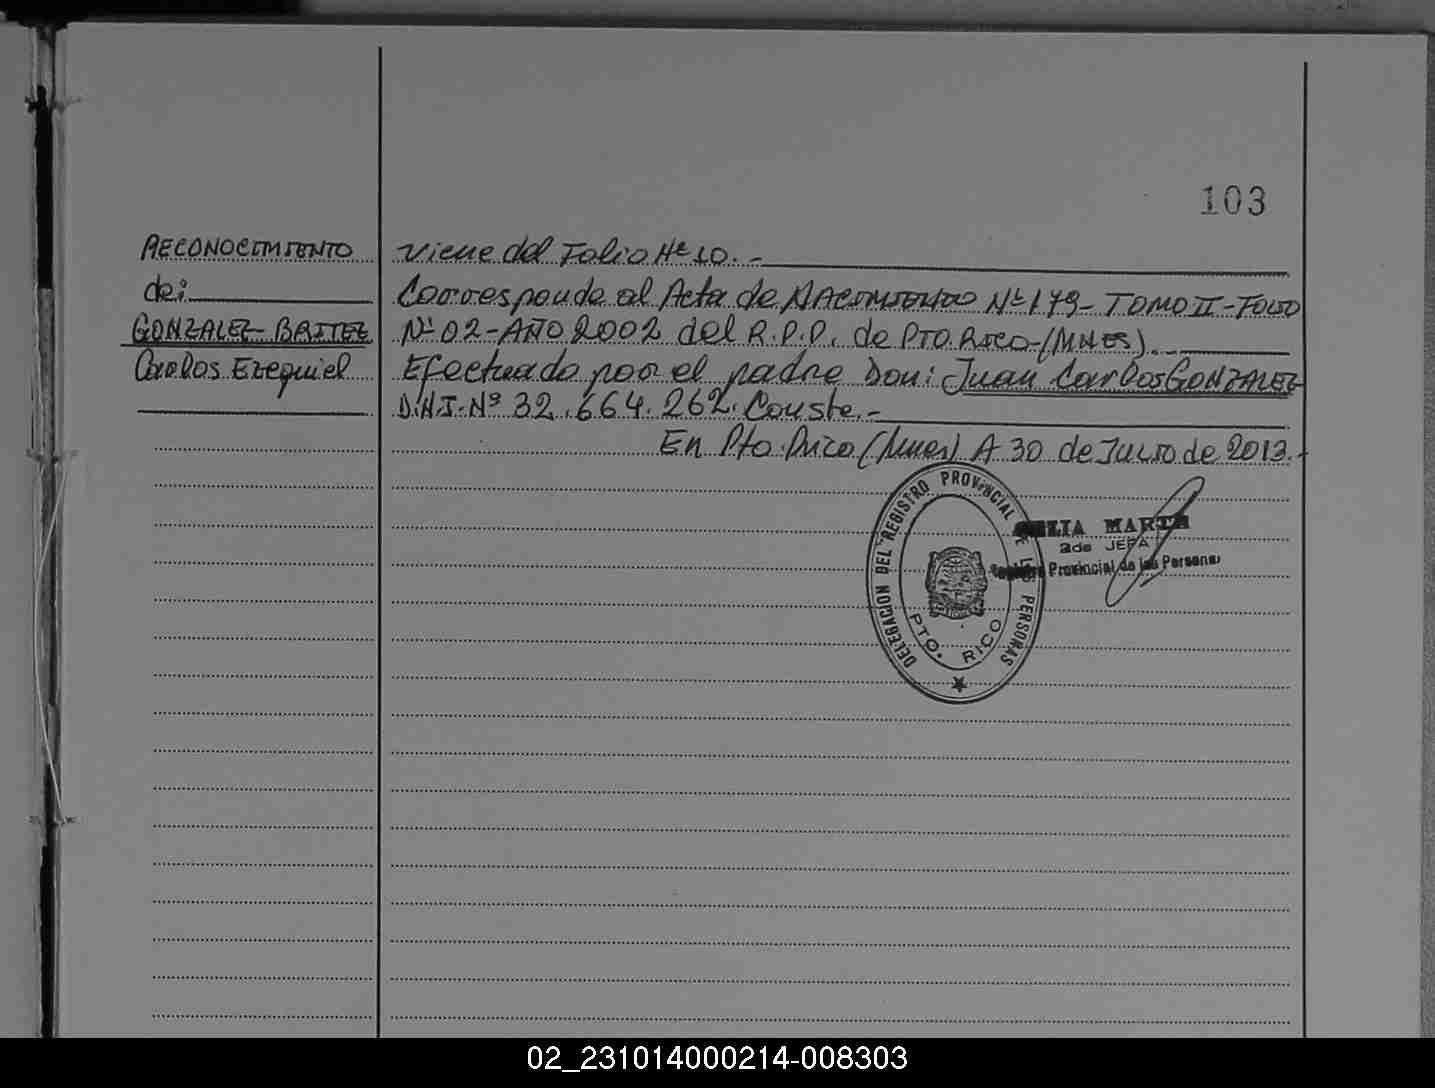 103
RECONOCIMIENTO
de:
GONZALEZ BRITEZ
Carlos Ezequiel
Viene del Folio Nº 10.-
Corresponde al Acta de NACIMIENTO Nº 179- TOMO II - FOLIO
Nº 02 - AÑO 2002 del R.P.P. de PTO. RICO-(MNES).
Efectuado por el padre Don: Juan Carlos GONZALEZ
D.N.I. Nº 32.664.262. Conste.-
En Pto. Rico (Mnes) A 30 de Julio de 2013.-
DELEGACION DEL REGISTRO PROVINCIAL DE LAS PERSONAS
PTO. RICO
MARTA
2da JEFA
Provincial de las Personas
02_231014000214-008303